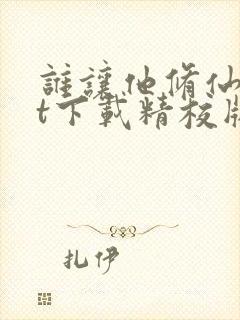 誰讓他脩仙
t下載精校版
扎伊